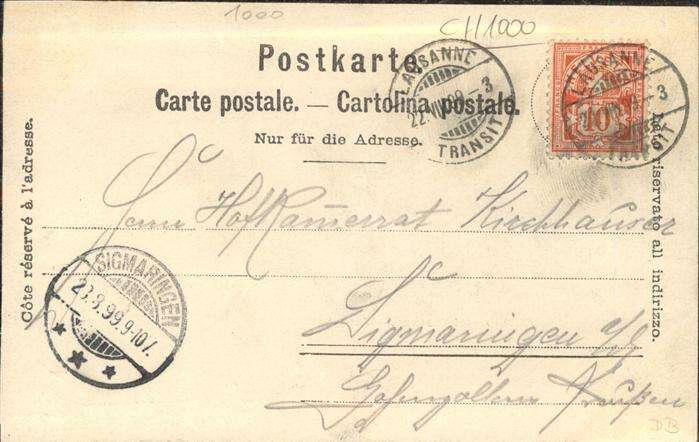 1000
CH1000
Postkarte.
Carte postale. — Cartolina postale.
Nur für die Adresse.
Côte réservé à l'adresse.
Lato riservato all indirizzo.
LAUSANNE
22.VIII.99 – 3
TRANSIT
LAUSANNE
3
TRANSIT
10
Herrn Hofkam̅errat Kirchhauser
Sigmaringen a/D
Hohenzollern Preußen
SIGMARINGEN
23.8.99.9-10V.
DB